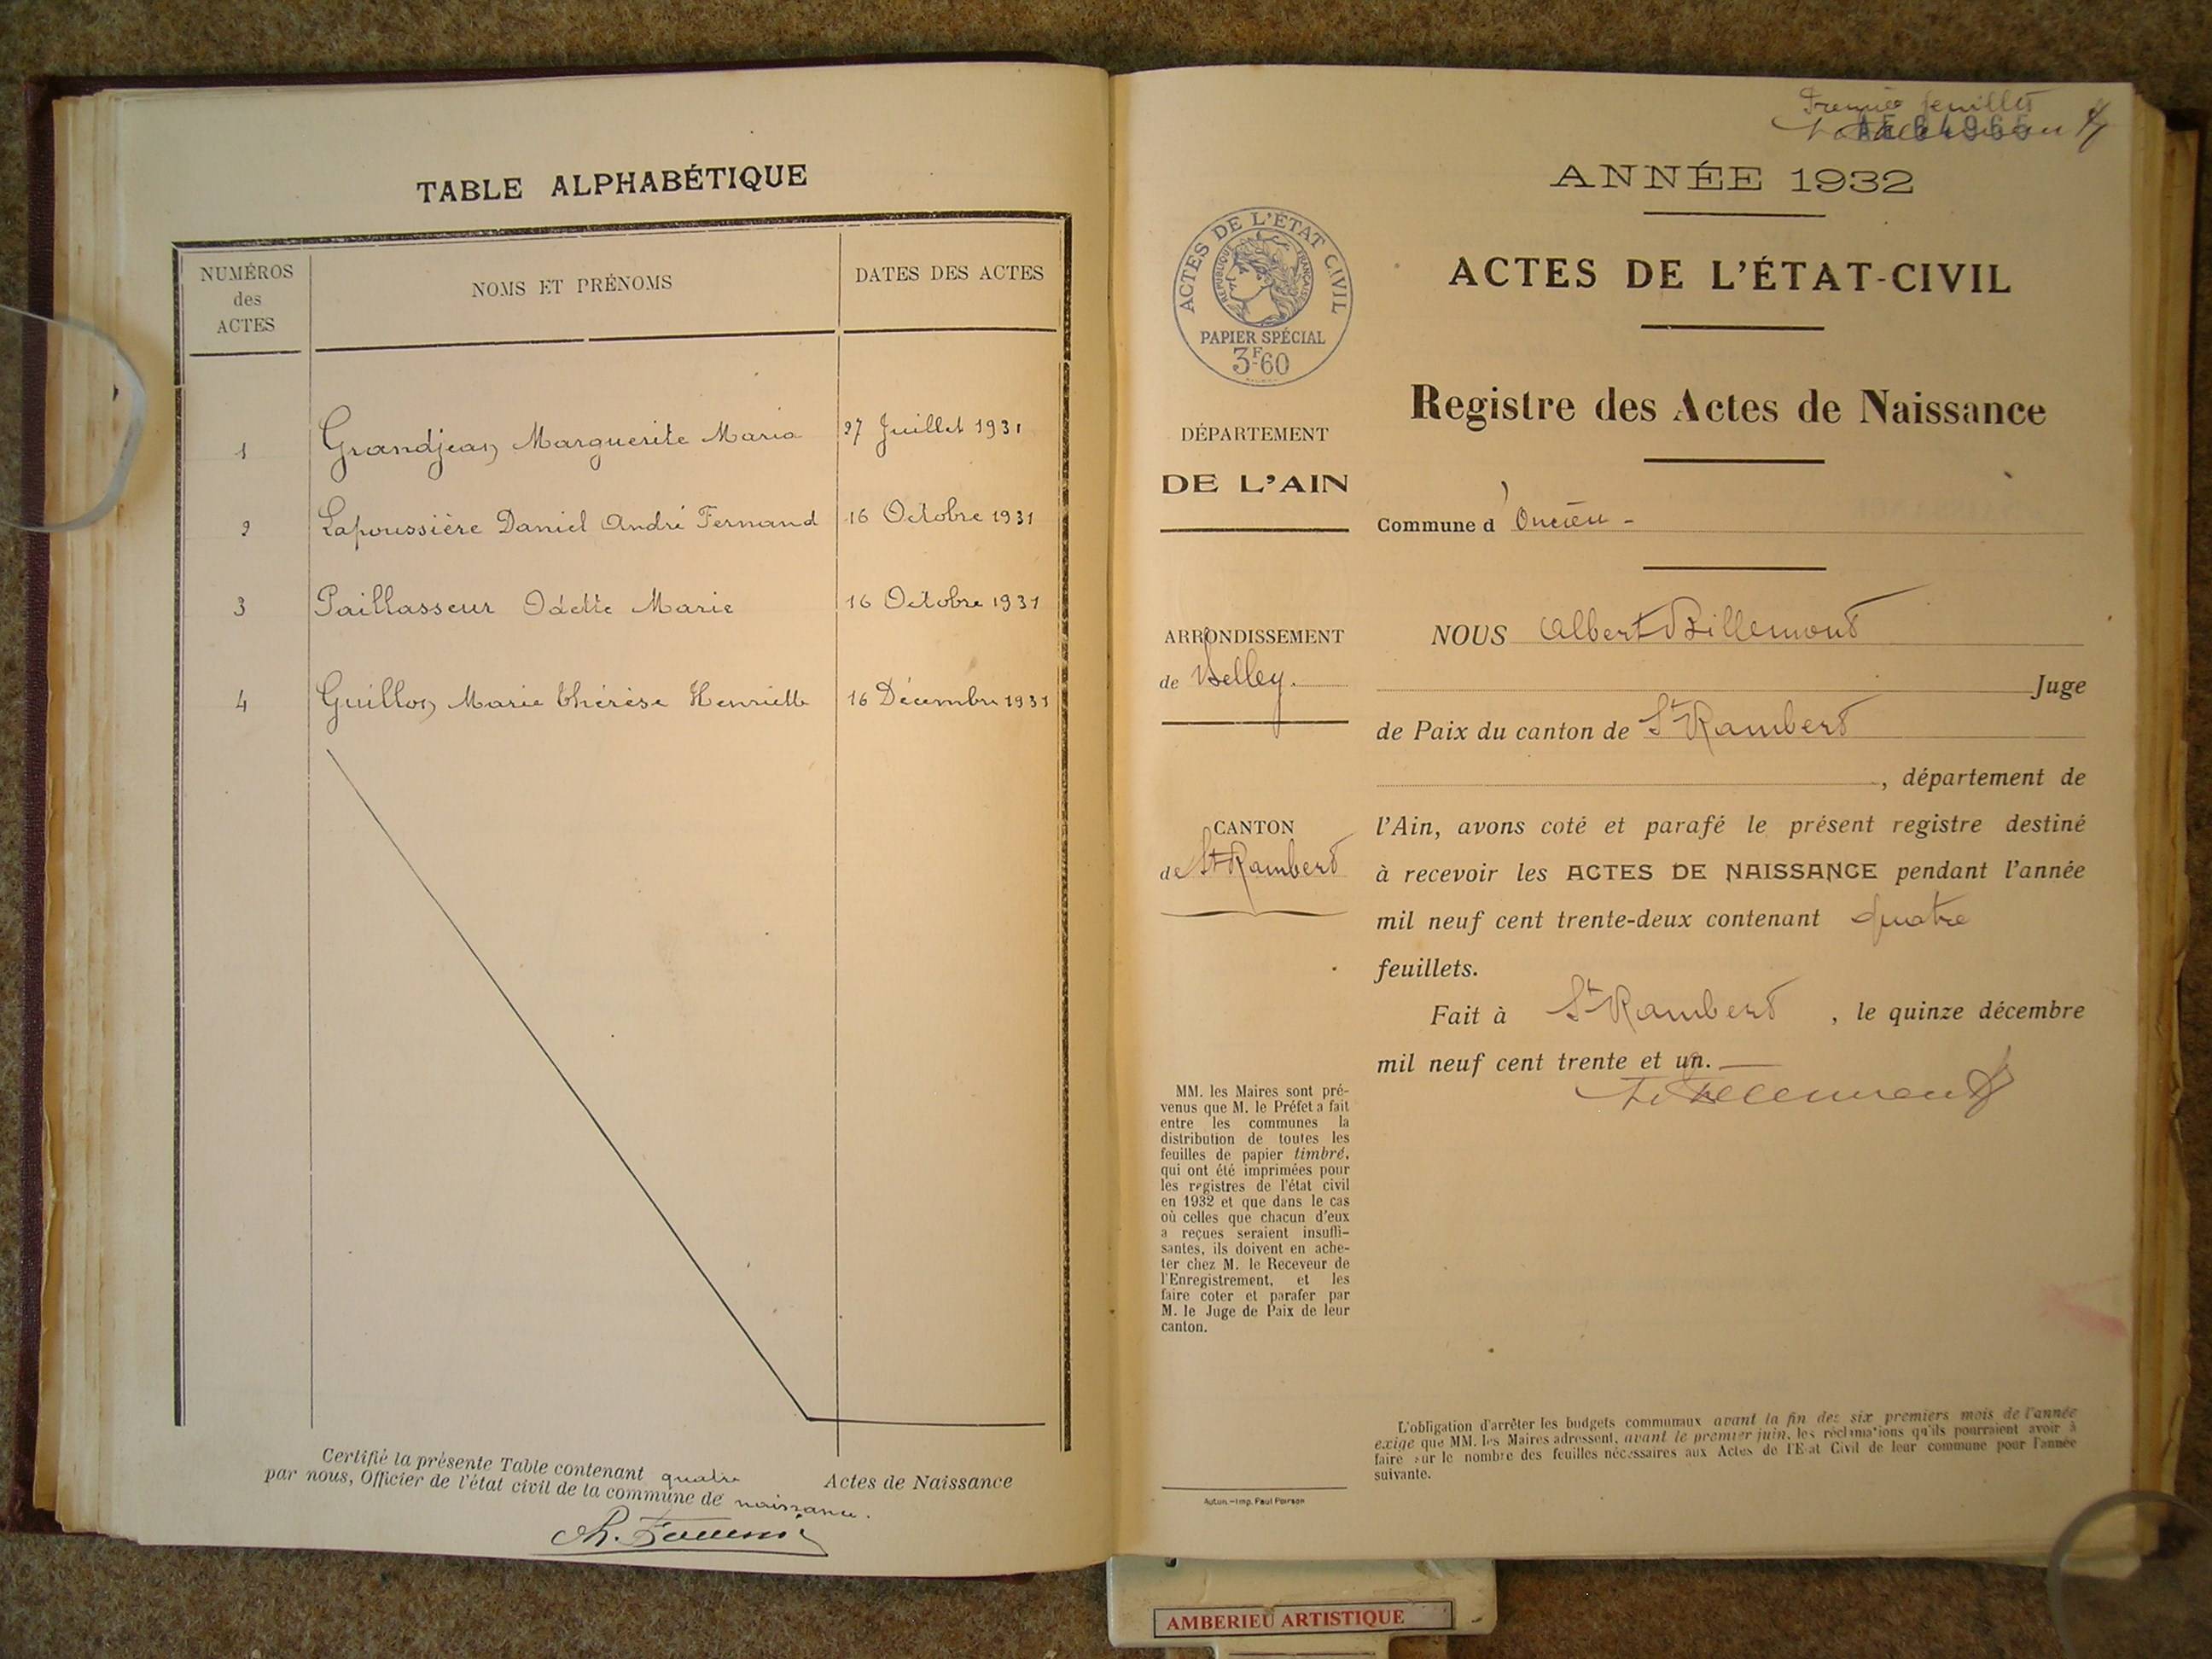 TABLE ALPHABÉTIQUE
NUMÉROS des ACTES
NOMS ET PRÉNOMS
DATES DES ACTES
1 Grandjean Marguerite Maria 27 Juillet 1931
2 Lapoussière Daniel André Fernand 16 Octobre 1931
3 Paillasseur Odette Marie 16 Octobre 1931
4 Guillon Marie Thérèse Henriette 16 Décembre 1931
Certifié la présente Table contenant quatre Actes de Naissance
par nous, Officier de l'état civil de la commune de naissance.
Premier feuillet
ANNÉE 1932
ACTES DE L'ÉTAT-CIVIL
Registre des Actes de Naissance
ACTES DE L'ÉTAT CIVIL
RÉPUBLIQUE FRANÇAISE
PAPIER SPÉCIAL
3F60
DÉPARTEMENT
DE L'AIN
ARRONDISSEMENT
de Belley.
CANTON
de St Rambert
Commune d'Oncieu -
NOUS Albert Billemont
Juge
de Paix du canton de St Rambert
, département de
l'Ain, avons coté et parafé le présent registre destiné
à recevoir les ACTES DE NAISSANCE pendant l'année
mil neuf cent trente-deux contenant quatre
feuillets.
Fait à St Rambert, le quinze décembre
mil neuf cent trente et un.
MM. les Maires sont pré-
venus que M. le Préfet a fait
entre les communes la
distribution de toutes les
feuilles de papier timbré,
qui ont été imprimées pour
les registres de l'état civil
en 1932 et que dans le cas
où celles que chacun d'eux
a reçues seraient insuffi-
santes, ils doivent en ache-
ter chez M. le Receveur de
l'Enregistrement, et les
faire coter et parafer par
M. le Juge de Paix de leur
canton.
Autun. - Imp. Paul Poirson
L'obligation d'arrêter les budgets communaux avant la fin des six premiers mois de l'année
exige que MM. les Maires adressent, avant le premier juin, les réclamations qu'ils pourraient avoir à
faire sur le nombre des feuilles nécessaires aux Actes de l'Etat Civil de leur commune pour l'année
suivante.
AMBERIEU ARTISTIQUE